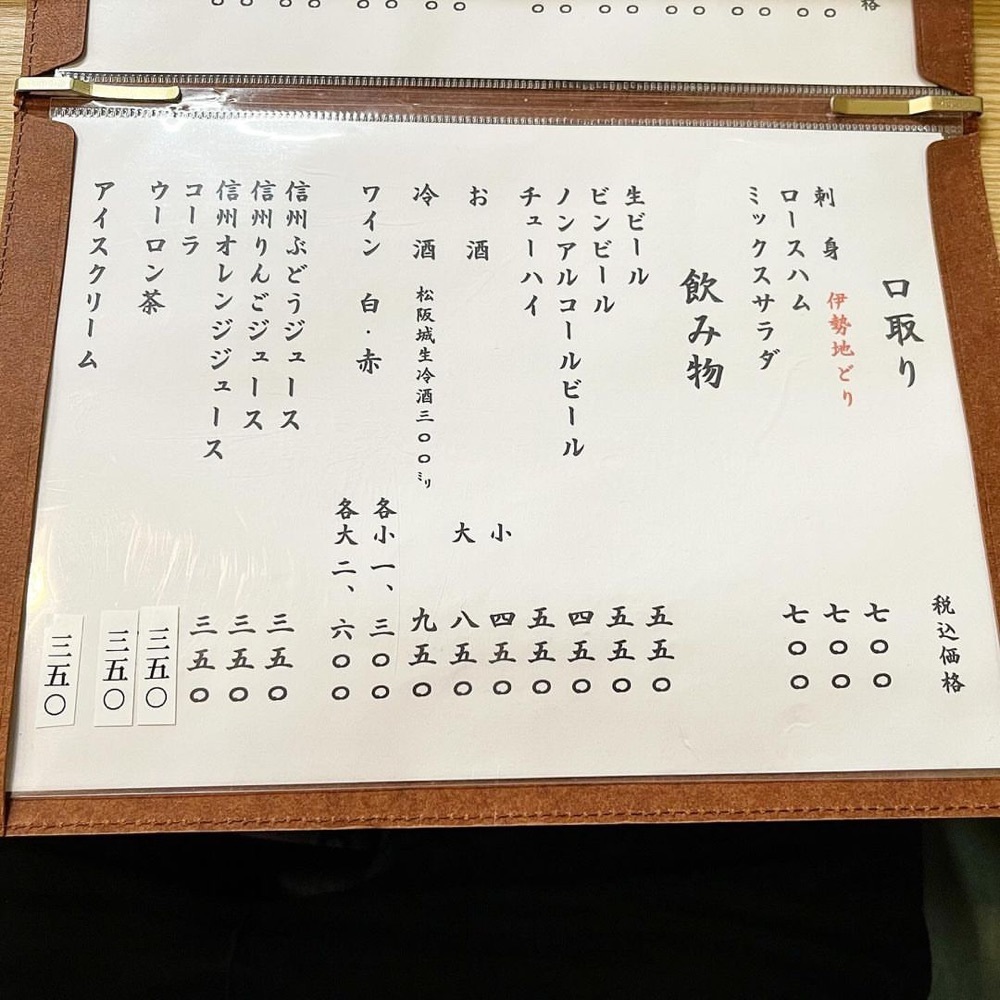 格
税込価格
口取り
刺身 伊勢地どり 七〇〇
ロースハム 七〇〇
ミックスサラダ 七〇〇
飲み物
生ビール 五五〇
ビンビール 五五〇
ノンアルコールビール 四五〇
チューハイ 五五〇
お酒 小 四五〇
大 八五〇
冷酒 松阪城生冷酒三〇〇㍉ 九五〇
ワイン 白・赤 各小 一、三〇〇
各大 二、六〇〇
信州ぶどうジュース 三五〇
信州りんごジュース 三五〇
信州オレンジジュース 三五〇
コーラ 三五〇
ウーロン茶 三五〇
アイスクリーム 三五〇